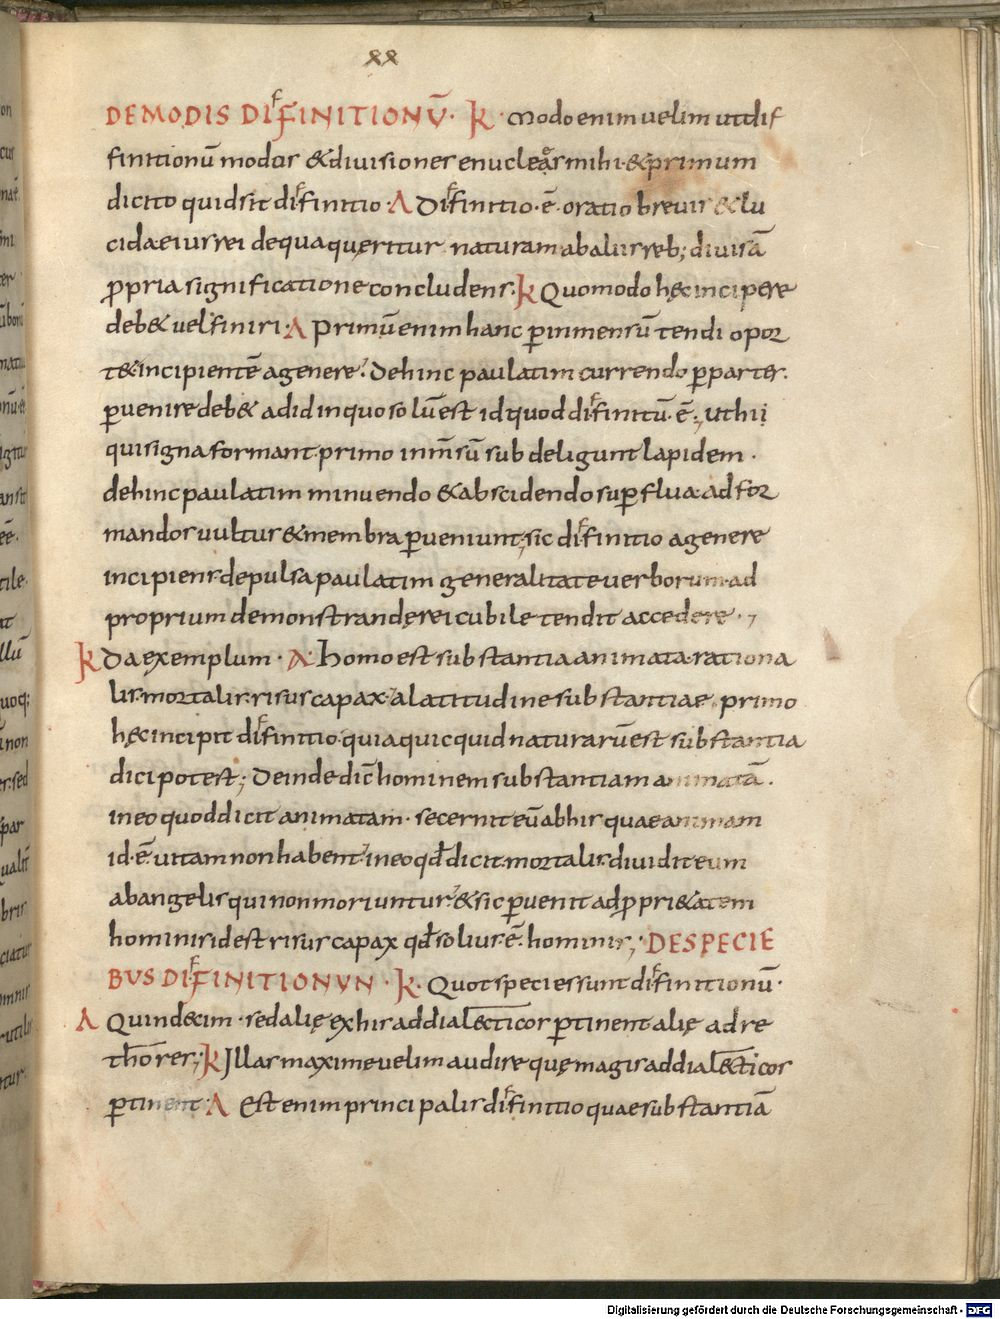 xx
DE MODIS DIFFINITIONŪ. K. Modo enim velim ut dif
finitionū modos & divisiones enucleas mihi. & primum
dicito quid sit diffinitio. A Diffinitio. ē. oratio brevis & lu
cida eius rei de qua quęritur naturam ab aliis reb; divisā
ꝓpria significatione concludens. K Quomodo hęc incipere
deb& vel finiri. A Primū enim hanc ꝑ inmensū tendi opor
t& incipientē a genere. Dehinc paulatim currendo ꝑ partes.
ꝑvenire deb& ad id in quo solū est id quod diffinitū. ē; ut hii
qui signa formant primo inm̄sū sub deligunt lapidem.
dehinc paulatim minuendo & abscidendo suꝑflua ad for
mandos vultus & membra ꝑveniunt; sic diffinitio a genere
incipiens depulsa paulatim generalitate verborum ad
proprium demonstrandę rei cubile tendit accedere.;
K Da exemplum. A. Homo est substantia animata rationa
lis. mortalis. risus capax. a latitudine substantiae primo
hęc incipit diffinitio. quia quicquid naturarū est substantia
dici potest; Deinde dic̄ hominem substantiam animatā.
in eo quod dicit animatam. secernit eū ab his quae animam
id. ē vitam non habent. in eo qd̄ dicit mortalis. dividit eum
ab angelis qui non moriuntur. & sic ꝑvenit ad ꝓpri&atem
hominis id est risus capax qd̄ solius. ē. hominis; DE SPECIE
BUS DIFFINITIONUN. K. Quot species sunt diffinitionū.
A Quindecim. sed alię ex his ad dialecticos ꝑtinent alię ad re
thores; K Illas maxime velim audire quę magis ad dialecticos
ꝑtinent. A Est enim principalis diffinitio quae substantiā
Digitalisierung gefördert durch die Deutsche Forschungsgemeinschaft - DFG